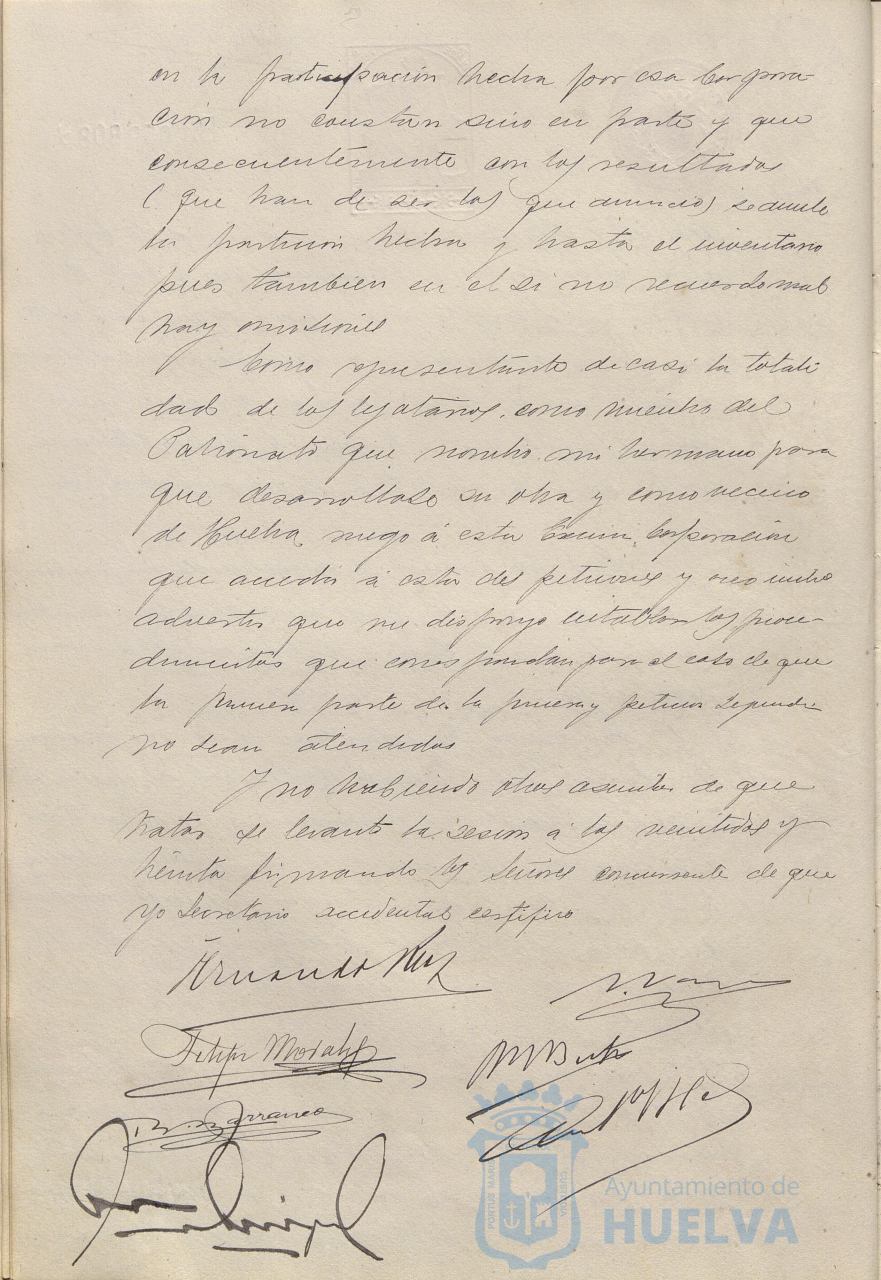 en la participación hecha por esa Corpora-
ción no constan sino en parte y que
consecuentemente con los resultados
(que han de ser los que anuncio) se anule
la partición hecha y hasta el inventario
pues tambien en el si no recuerdo mal
hay omisiones
Como representante de casi la totali
dad de los legatarios, como miembro del
Patronato que nombro mi hermano para
que desarrollase su obra y como vecino
de Huelva ruego á esta Excma Corporación
que acceda á estas dos peticiones y creo
advertir que me dispongo entablar los proce-
dimientos que correspondan para el caso de que
la primera parte de la primera y peticion segunda
no sean atendidas
Y no habiendo otros asuntos de que
tratar se levantó la sesion á las veintidos y
treinta firmando los Señores concurrente de que
yo Secretario accidental certifico
Felipe Morales
Ayuntamiento de
HUELVA